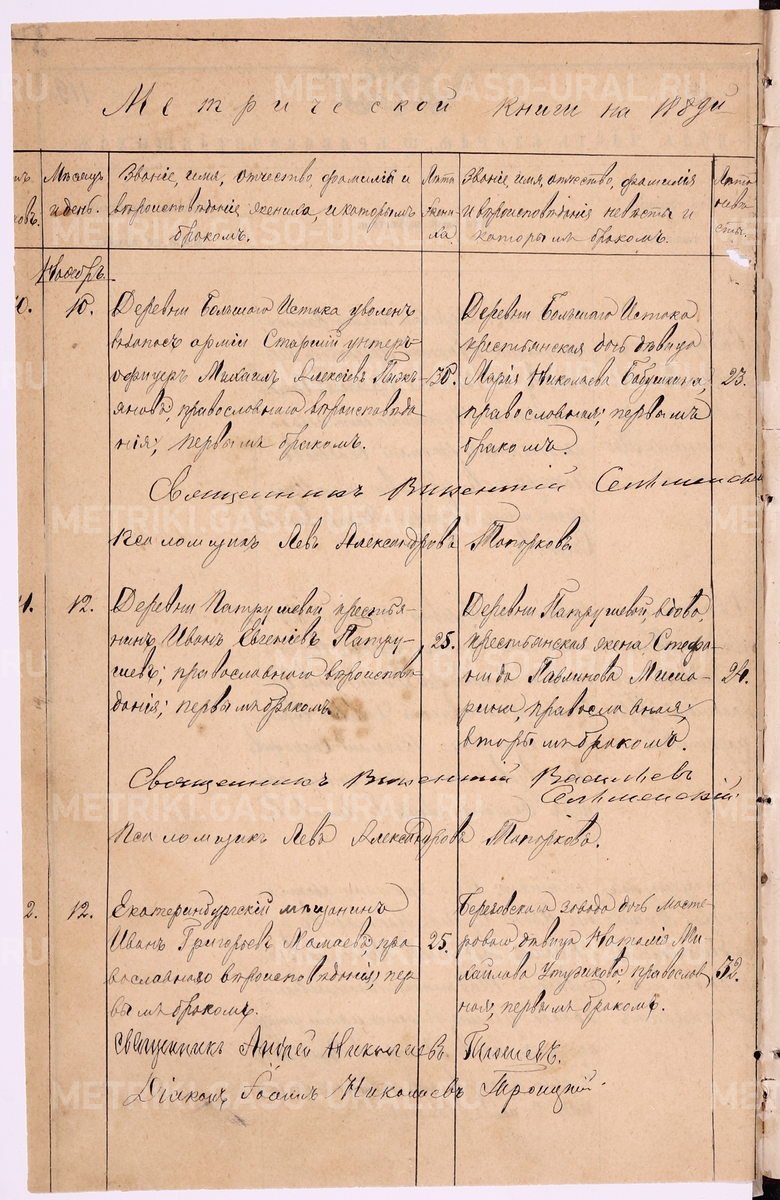 Метрической книги на 188
Мѣсяцъ и день.
Званіе, имя, отчество, фамилія и
вѣроисповѣданіе жениха, и которымъ
бракомъ.
Лѣта
жени
ха.
Званіе, имя, отчество, фамилія
и вѣроисповѣданія невѣсты и
которымъ бракомъ.
Лѣта
невѣ
сты.
Ноябрь
10.
Деревни Большаго Истока уволен.
въ запасъ арміи Старшій унтеръ-
офицеръ Михаилъ Алексіевъ
православнаго вѣроисповѣда-
нія; первымъ бракомъ.
30.
Деревни Большаго Истока
крестьянская дочь дѣвица
Марія Николаева Бабушкина,
православная; первымъ
бракомъ.
23.
Священникъ Викентій
Псаломщикъ Левъ Александровъ Топорковъ
12.
Деревни Патрушевой крестья-
нинъ Иванъ Евгеніевъ Патру-
шевъ; православнаго вѣроисповѣ-
данія; первымъ бракомъ.
25.
Деревни Патрушевой, вдова,
крестьянская жена Стефа-
нида Павлинова
православная,
вторымъ бракомъ.
24.
Священникъ Викентій Васильевъ
Псаломщикъ Левъ Александровъ Топорковъ.
2.
12.
Екатеринбургскій мѣщанинъ
Иванъ Григорьевъ Мамаевъ, пра
вославнаго вѣроисповѣданія; пер
вымъ бракомъ.
25.
Березовскаго завода дочь масте-
роваго дѣвица Наталія Ми-
хайлова православ
ная; первымъ бракомъ.
Священникъ Андрей Николаевъ
Діаконъ Іоаннъ Николаевъ Троицкій.
METRIKI.GASO-URAL.RU